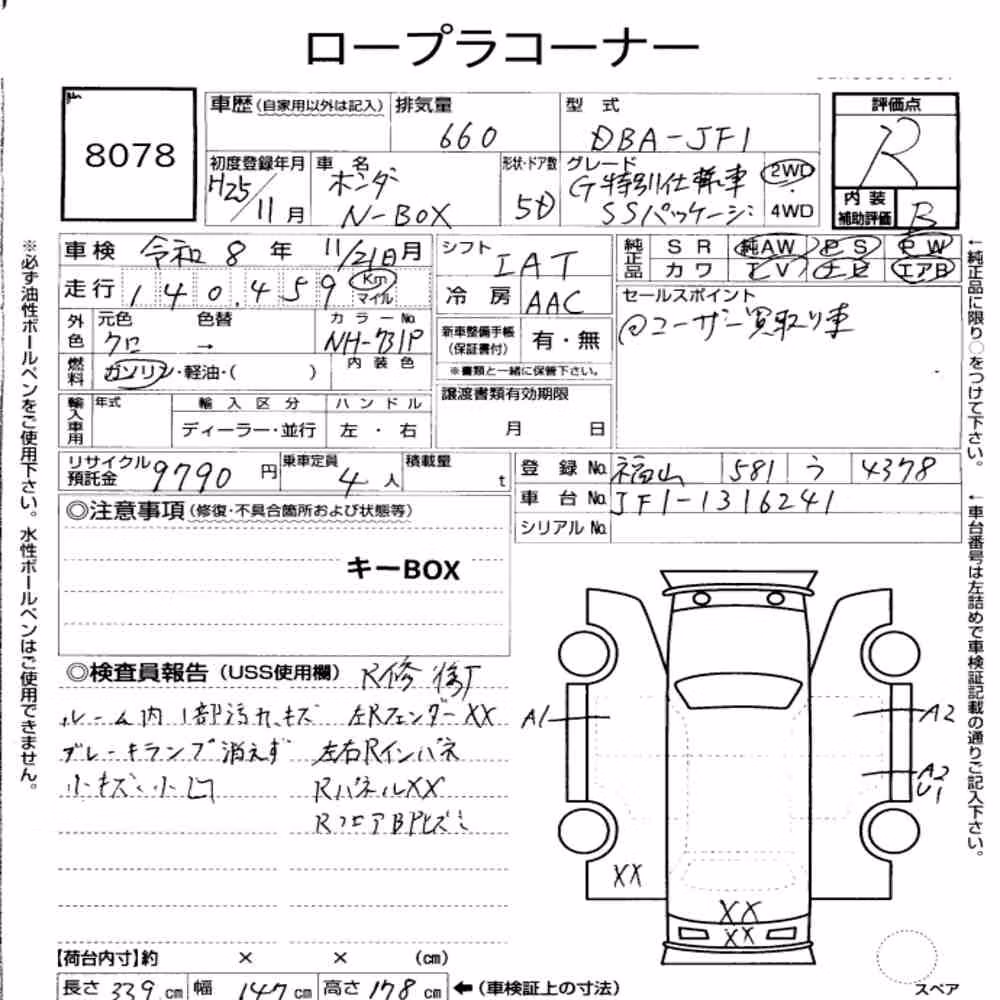 ロープラコーナー
8078
車歴 (自家用以外は記入) 排気量 型 式 評価点
660 DBA-JF1 R
初度登録年月 車 名 形状・ドア数 グレード
H25/11月 ホンダ N-BOX 5D G特別仕様車 SSパッケージ 2WD・4WD
内装補助評価 B
車検 令和 8 年 11/21日月 シフト IAT
純正品 SR 純AW PS PW
カワ TV ナビ エアB
走行 140,459 Km マイル 冷房 AAC
セールスポイント
@ユーザー買取り車
外色 元色 色替 カラーNo.
クロ → NH-731P
内装色
新車整備手帳 (保証書付) 有・無
※書類と一緒に保管下さい。
燃料 ガソリン・軽油・( )
譲渡書類有効期限
月 日
輸入車用 年式 輸入区分 ハンドル
ディーラー・並行 左・右
リサイクル預託金 9790 円 乗車定員 4 人 積載量 t
登録No. 福山 581 う 4378
車台No. JF1-1316241
シリアルNo.
◎注意事項 (修復・不具合箇所および状態等)
キーBOX
◎検査員報告 (USS使用欄) R修
ルーム内1部汚れキズ 左RフェンダーXX
ブレーキランプ消えず 左右Rインパネ
小キズ・小凹 RパネルXX
RフロアBPヒズミ
A1 A2
A2
U1
XX
XX
XX
【荷台内寸】約 × × (cm)
長さ 339 cm 幅 147 cm 高さ 178 cm ←(車検証上の寸法)
スペア
※必ず油性ボールペンをご使用下さい。水性ボールペンはご使用できません。
←純正品に限り○をつけて下さい。
←車台番号は左詰めで車検証記載の通りご記入下さい。